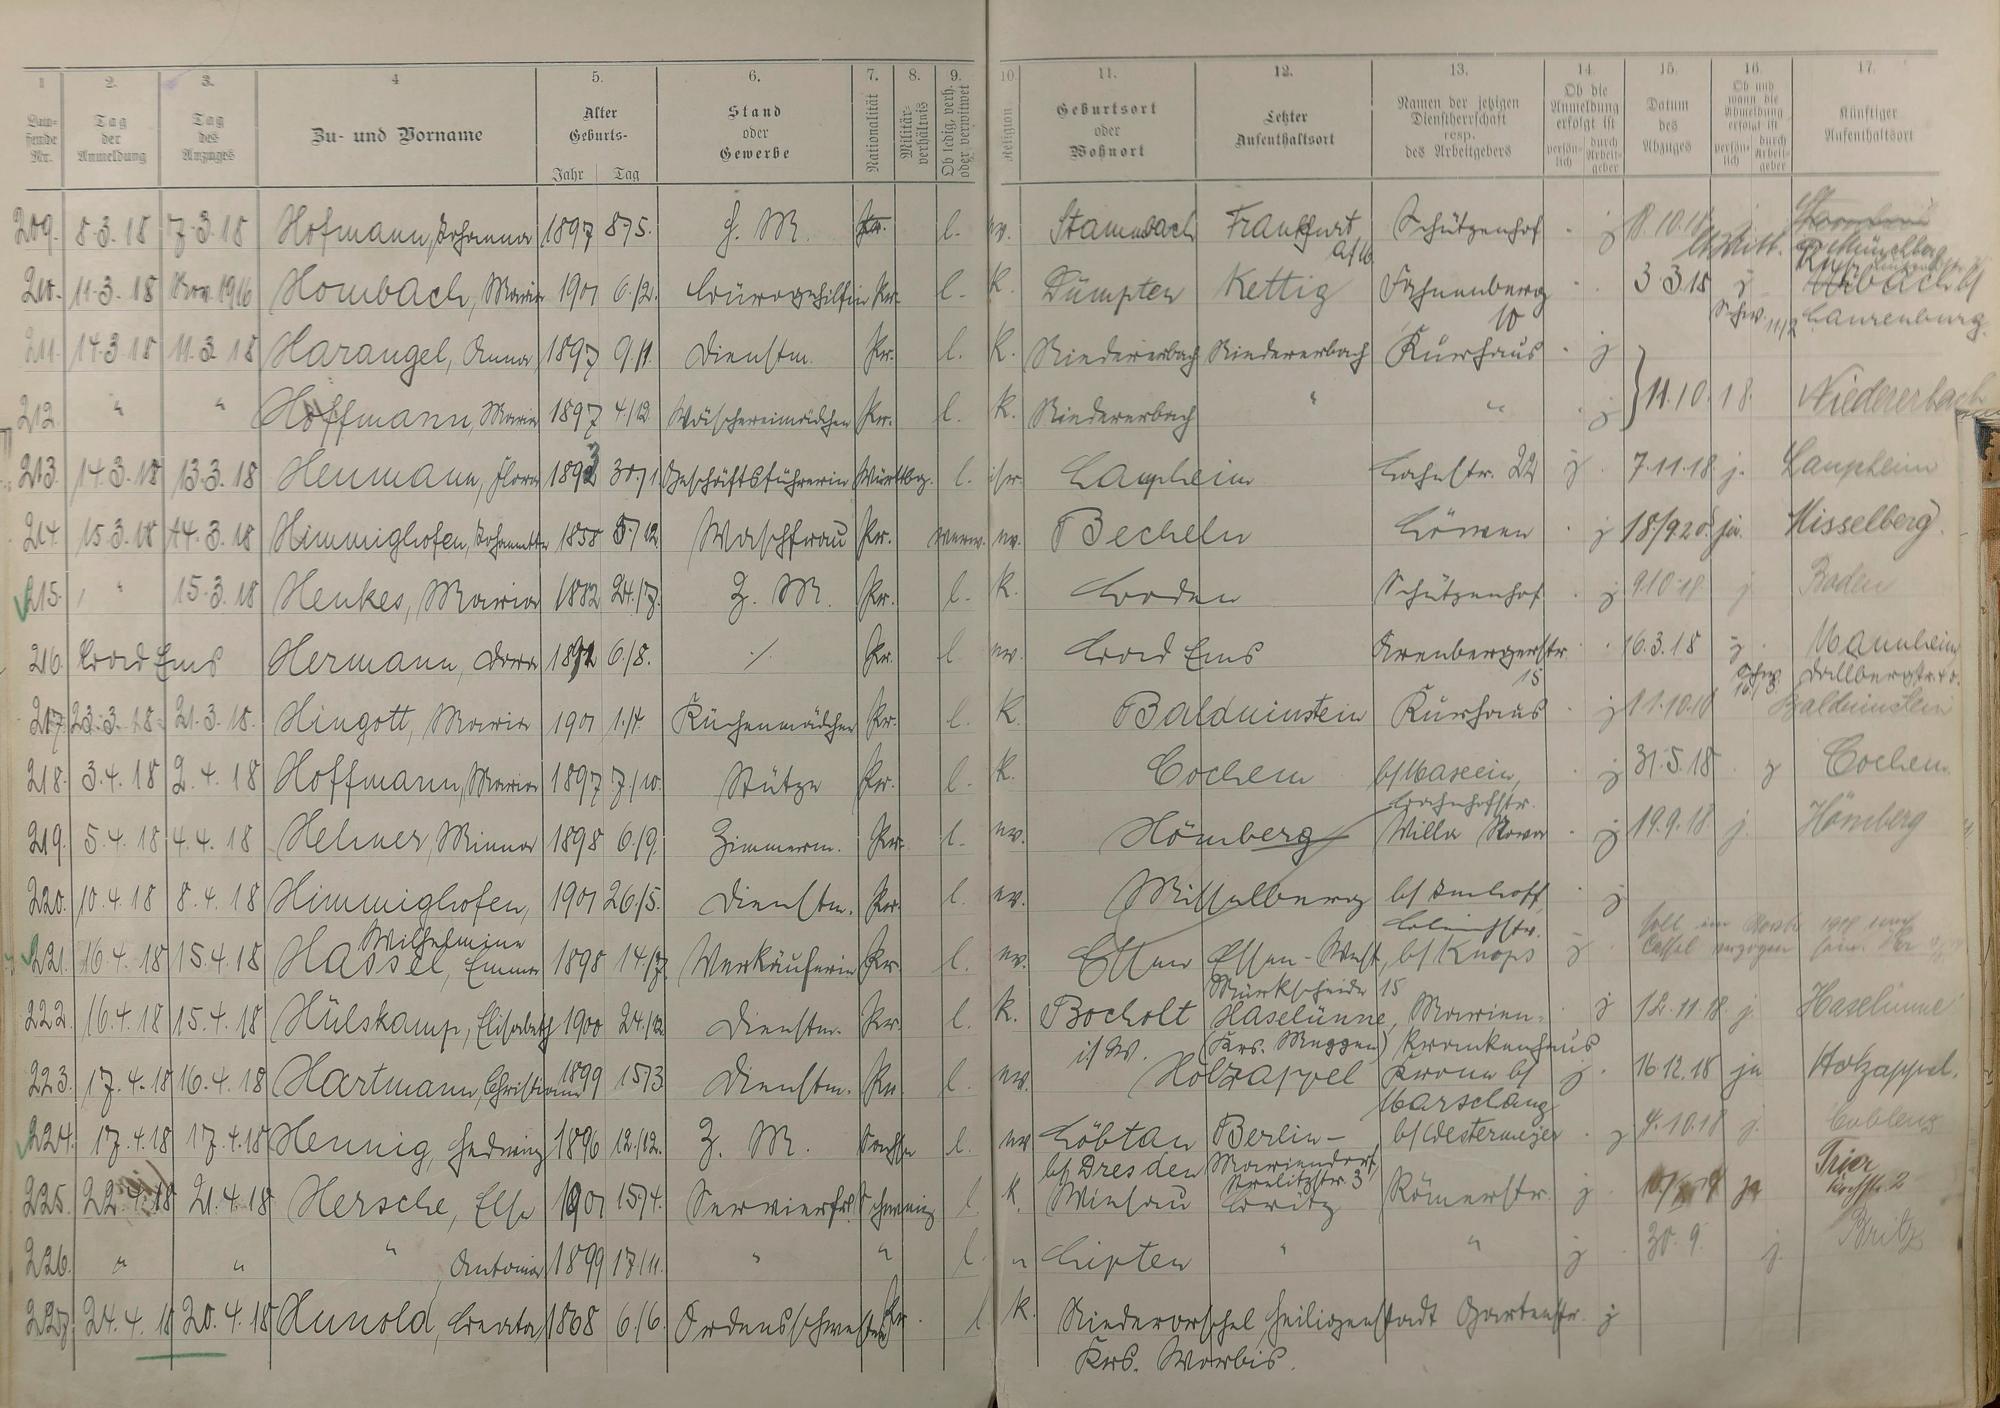 1. 2. 3. 4 5. 6. 7. 8. 9. 10. 11. 12. 13. 14. 15. 16. 17.
Lau-
fende
Nr.
Tag
der
Anmeldung
Tag
des
Anzuges
Zu- und Vorname
Alter
Geburts-
Jahr Tag
Stand
oder
Gewerbe
Nationalität
Militär-
verhältnis
Ob ledig, verh.
oder verwitwet
Religion
Geburtsort
oder
Wohnort
Letzter
Aufenthaltsort
Namen der jetzigen
Dienstherrschaft
resp.
des Arbeitgebers
Ob die
Anmeldung
erfolgt ist
persön-
lich
durch
Arbeit-
geber
Datum
des
Abzuges
Ob und
wann die
Abmeldung
erfolgt ist
persön-
lich
durch
Arbeit-
geber
Künftiger
Aufenthaltsort
209. 8.3.18 7.3.18 Hofmann, Johanna 1897 8/5. l. ev. Stammbach Frankfurt Schützenhof j
a/M.
Münchberg
210. 11.3.18 Nov. 1916 Hombach, Maria 1901 6/2. Bürogehilfin Pr. l. K. Dümpten Kettig 3.3.18 j
10 Laurenburg.
211. 14.3.18 11.3.18 Harangel, Anna 1897 9/1. Dienstm. Pr. l. K. Niedererbach Niedererbach Kurhaus j
212. " " Hoffmann, Maria 1897 4/12 Wäschereimädchen Pr. l. K. Niedererbach " " j 11.10.18. Niedererbach
213. 14.3.18 13.3.18 Heumann, Flora 30/1. Geschäftsführerin Württbg. l. isr. Laupheim Lahnstr. 22 j 7.11.18 j. Laupheim
214. 15.3.18 14.3.18 Himmighofen, Johannette 1858 5/12 Waschfrau Pr. verw. ev. Becheln Löwen j 18/9.20. ja. Misselberg.
215. " 15.3.18 Henkes, Maria 1882 24/7. Z. M. Pr. l. K. Boden Schützenhof j 9.10.18 j Boden
216. Bad Ems Hermann, Dora 1892 6/8. ./. Pr. l ev. Bad Ems Arenbergerstr. 16.3.18 j Mannheim
15 Dallbergstr. 40.
217 23.3.18. 21.3.18. Hingott, Maria 1901 1/4. Küchenmädchen Pr. l. K. Balduinstein Kurhaus j 11.10.18 Balduinstein
218. 3.4.18 2.4.18 Hoffmann, Maria 1897 7/10. Stütze Pr. l. K. Cochem j 31.5.18 j Cochem.
Bahnhofstr.
219. 5.4.18 4.4.18 Helmer, Minna 1898 6/9. Zimmerm. Pr. l. ev. Hömberg Villa j 19.9.18 j. Hömberg
220. 10.4.18 8.4.18 Himmighofen, 1901 26/5. Dienstm. Pr. l. ev. Misselberg b/ Imhoff j
Wilhelmine
221. 16.4.18 15.4.18 Hassel, Emma 1898 14/7. Verkäuferin Pr. l. ev. Essen Essen-West, b/ Knops j
Cassel verzogen
15
222. 16.4.18 15.4.18 Hülskamp, Elisabeth 1900 24/12 Dienstm. Pr. l. K. Bocholt Haselünne, Marien- j 12.11.18. j. Haselünne
i/W. (Krs. Meppen) krankenhaus
223. 17.4.18 16.4.18 Hartmann, Christiane 1899 15/3 Dienstm. Pr. l. ev. Holzappel Krone b/ j. 16.12.18 ja Holzappel.
224. 17.4.18 17.4.18 Hennig, Hedwig 1896 12/12. Z. M. Sachse l. ev Löbtau Berlin- b/ Westermeyer j 4.10.18 j. Coblenz
b/ Dresden Mariendorf
Strelitzstr. 3
225. 22.4.18 21.4.18 Hersche, Else 1901 15/4. Servierfrl. Schweiz l. K. Winsau Britz Römerstr. j ja Trier
226. " " " Antonia 1899 17/11. " " l. " Lipten " " j 30.9. j. Britz
227. 24.4.18 20.4.18 Hunold, Beata 1868 6/6. Ordensschwester Pr. l K. Niederorschel Heiligenstadt Gartenstr. j
Krs. Worbis.